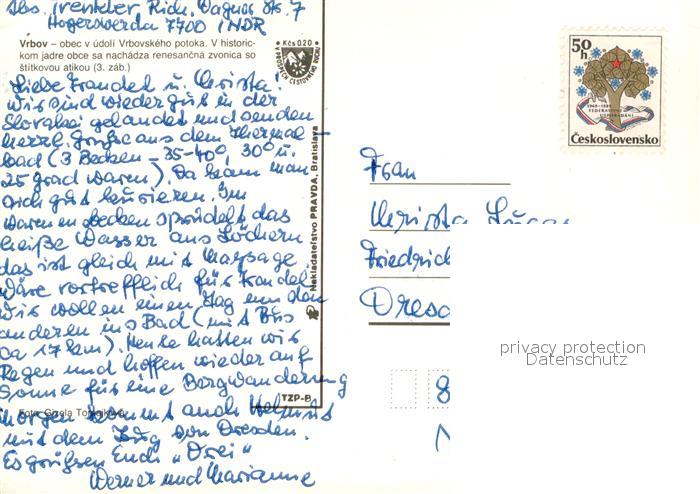 Abs. Trenkler Rich. Wagner Str. 7
Hoyerswerda 7700 / NDR
Vrbov – obec v údolí Vrbovského potoka. V historic-
kom jadre obce sa nachádza renesančná zvonica so
štítkovou atikou (3. záb.)
Kčs 0,20
Liebe Traudel u. Christa!
Wir sind wieder gut in der
Slovakei gelandet und senden
herzl. Grüße aus dem Thermal-
bad (3 Becken – 35-40°, 30° u.
25 grad waren). Da kann man
sich gut kurieren. Im
warmen becken sprudelt das
heiße Wasser aus Löchern
das ist gleich mit Massage.
Wäre vortrefflich für Traudel.
Wir wollen einen Tag um den
anderen ins Bad (mit Bus
ca 17 km). Heute hatten wir
Regen und hoffen wieder auf
Sonne für eine Bergwanderung
Morgen kommt auch Helmut
mit dem Zug von Dresden.
Es grüßen Euch „Drei"
Werner und Marianne
Foto: Gizela
Nakladateľstvo PRAVDA, Bratislava
TZP-B
50 h
FEDERATIVNÍ
USPOŘÁDÁNÍ
Československo
Frau
Christa
Friedrich
Dresd
8
privacy protection
Datenschutz